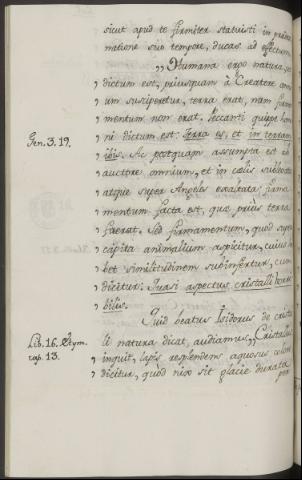 sicut apud te firmiter statuisti in prima
natione suo tempore, ducas ad effectum
„Humana ergo natura,
dictum est, priusquam à Creatore
um susiperetur, terra erat, nam firma
mentum non erat. Peccanti quippe homi
Gen. 3. 19.
ni dictum est: Terra es, et in terram
ibis. Ac postquam assumpta est ab
auctore omnium, et in cælis sublevata
atque super Angelos exaltata, firma
mentum facta est, quæ priùs terra
fuerat. Sed firmamentum, quod super
capita animalium aspicitur, cuius
bet similitudinem subinfertur, cum
dicitur: Quasi aspectus cristalli horri
bilis.
Quid beatus Isidorus de crista
Lib. 16. Etym.
cap. 13.
li natura dicat, audiamus: „Cristallus
inquit, lapis resplendens aquosus colore
dicitur, quòd nix sit glacie durata
per